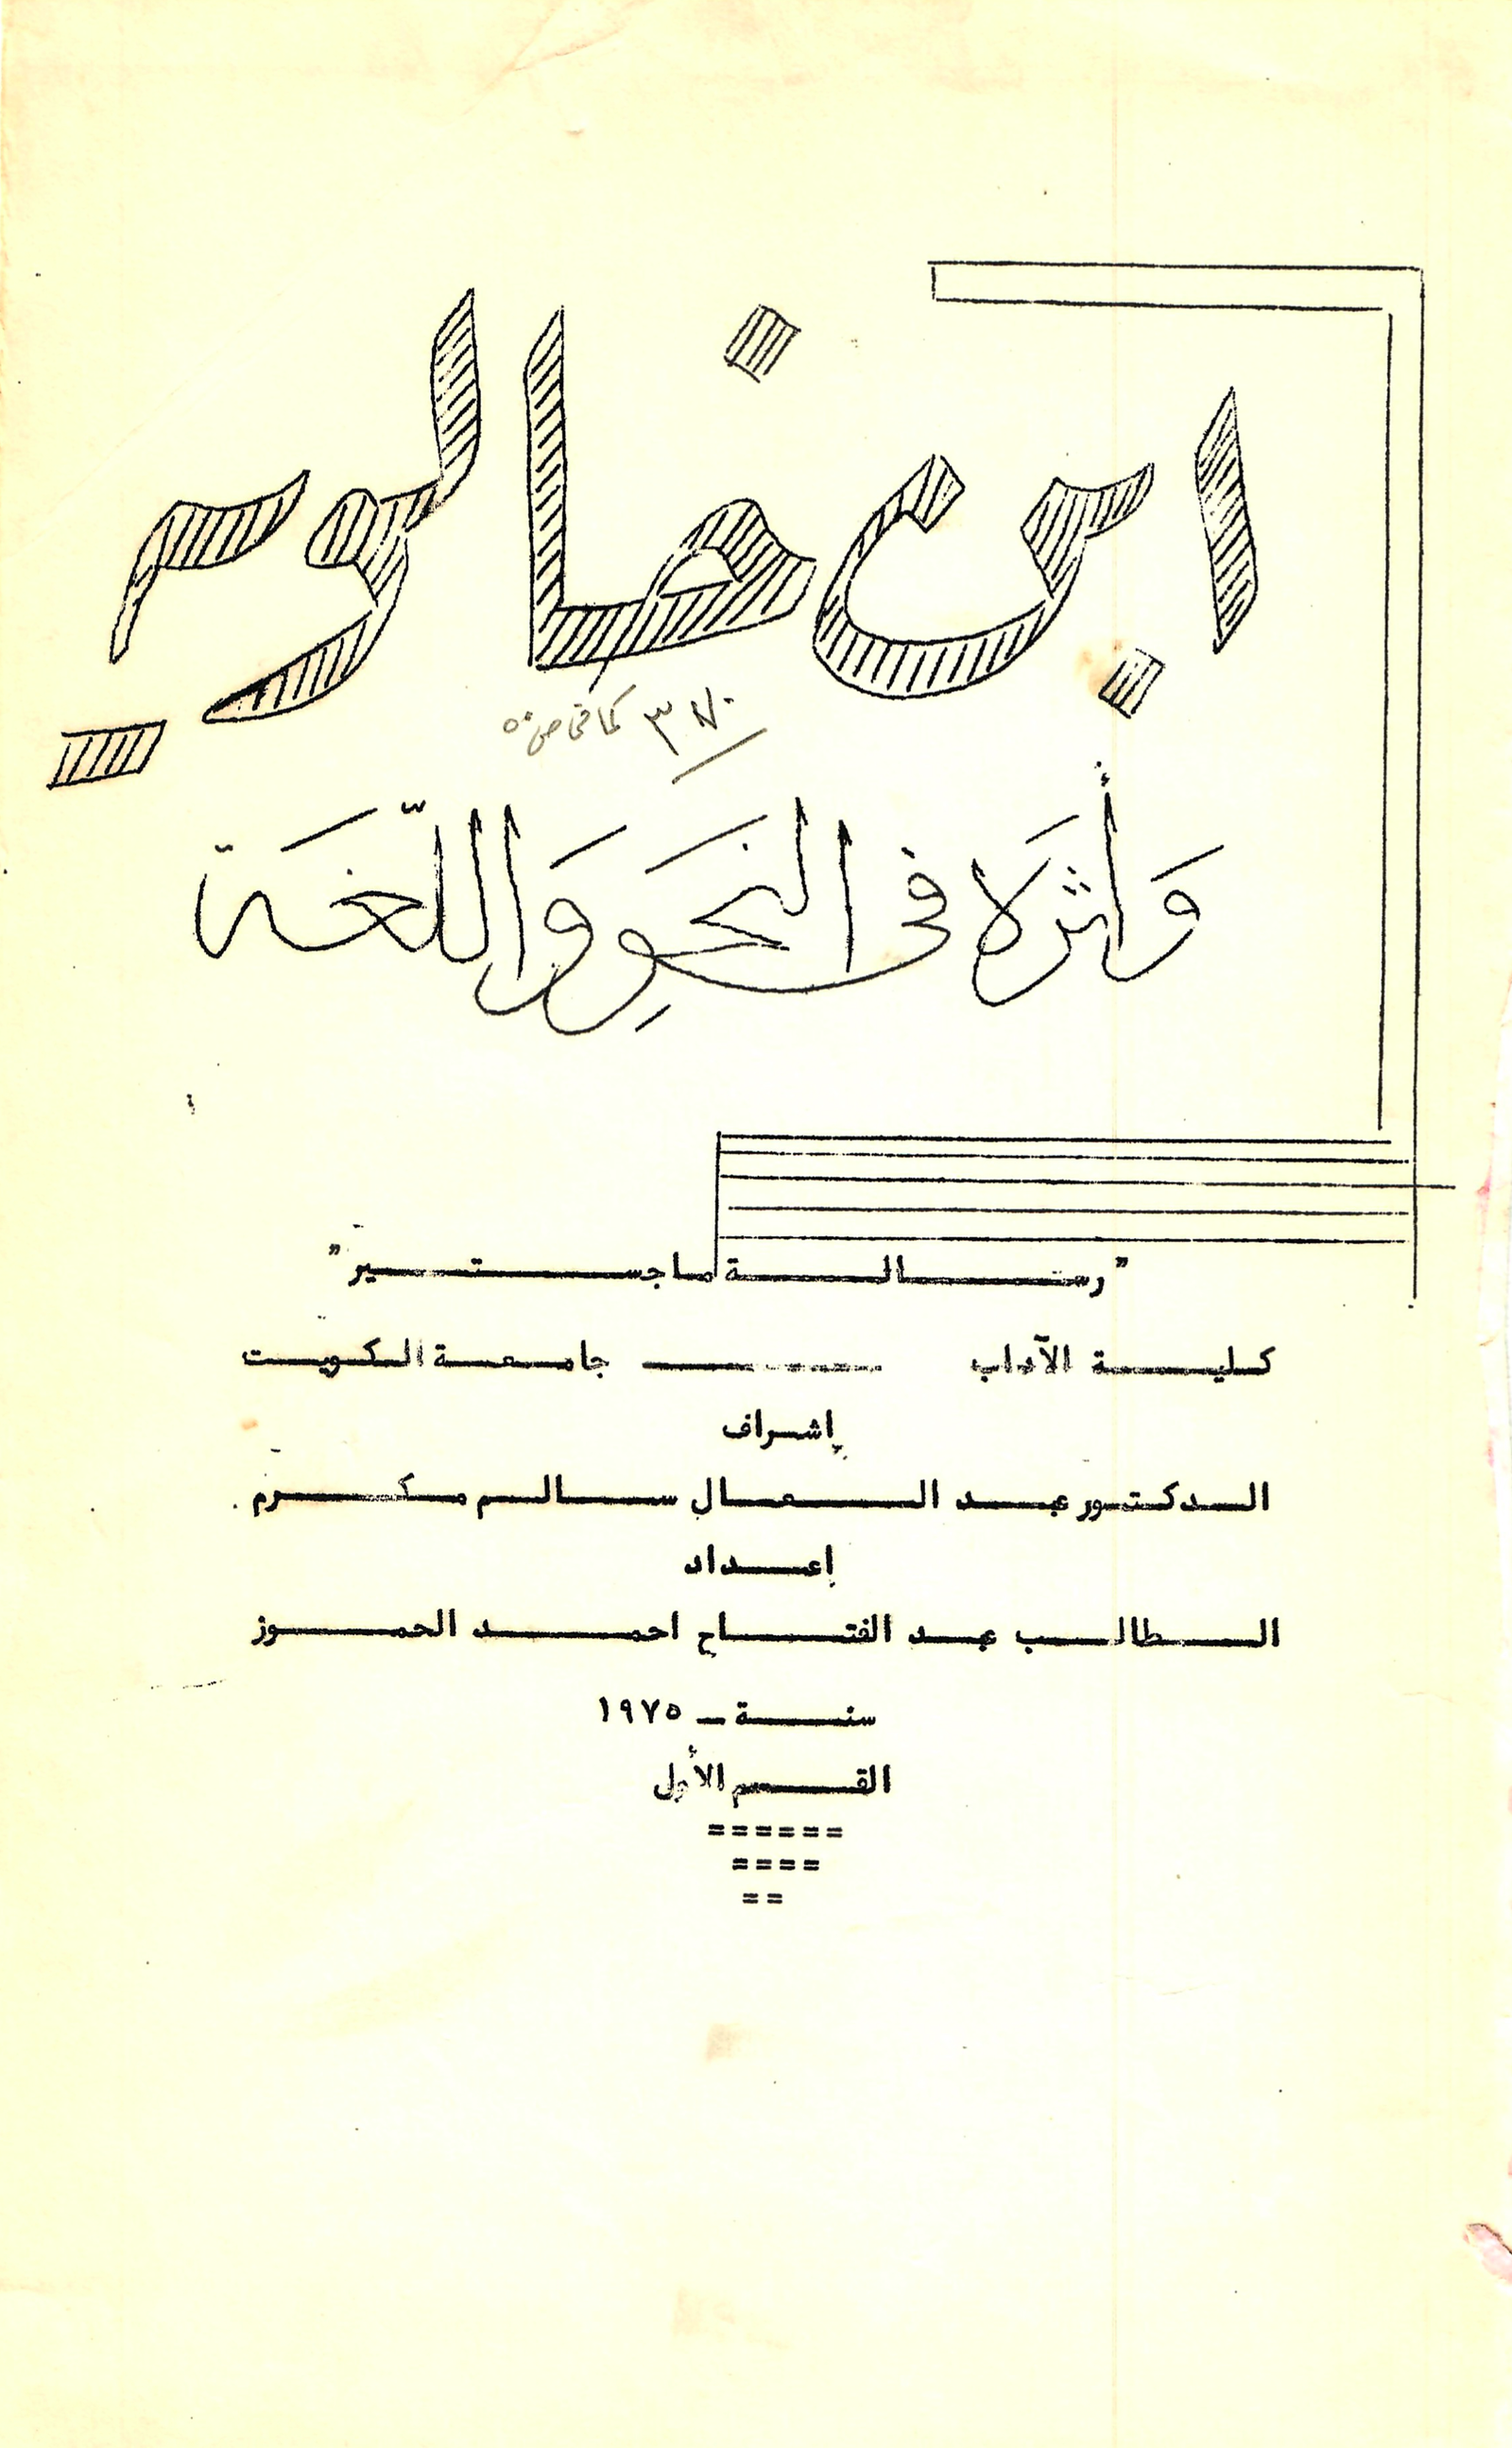 ابن خالويه
٣٧٠ كما في ص ٥٠
وَأَثَرَه في النَحوِ وَاللّغَة
"رسالة ماجستير"
كلية الآداب ــ جامعة الكويت
إشراف
الدكتور عبد العال سالم مكرم
إعداد
الطالب عبد الفتاح احمد الحموز
سنة ـ ١٩٧٥
القسم الأول
======
====
==